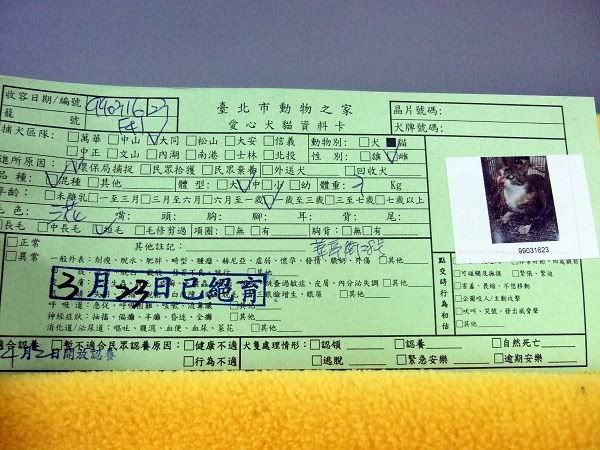 收容日期/編號 990316 23
臺北市動物之家
晶片號碼:
籠 號
愛心犬貓資料卡
犬牌號碼:
捕犬區隊: □萬華 □中山 □大同 □松山 □大安 □信義 動物別: □犬 ■貓
□中正 □文山 □內湖 □南港 □士林 □北投 性別: □雄 □雌
進所原因: □環保局捕捉 □民眾拾獲 □民眾棄養 □外送犬 □回收犬
品種: □混種 □其他 體型: □大 □中 □小 □幼 體重: 3 Kg
年齡: □未離乳 □一至三月 □三月至六月 □六月至一歲 □一歲至三歲 □三至七歲 □七歲以上
毛色: 三花 嘴: 頭: 胸: 腳: 耳: 背: 尾:
□長毛 □中長毛 □短毛 □毛修剪過 項圈: □無 □有 胸背: □無 □有
99031623
□正常 其他註記:
□異常
一般外表: 削瘦、脫水、肥胖、畸型、腫瘤、赫尼亞、虛弱、懷孕、發情、脫肛、外傷 □其他
3月23日已絕育
點交時行為初估
□可碰觸及撫摸 □緊張、緊迫
□害羞、畏縮、不想移動
□企圖咬人/主動攻擊
□吠叫、哭號、發出威脅聲
□其他
神經症狀: 抽搐、偏癱、半癱、昏迷、全癱 □其他
消化道/泌尿道: 嘔吐、腹瀉、血便、血尿、紫花 □其他
適合認養 □暫不適合民眾認養原因: □健康不適 犬隻處理情形: □認領 □認養 □自然死亡
4月2日開放認養 □行為不適 □逃脫 □緊急安樂 □逾期安樂